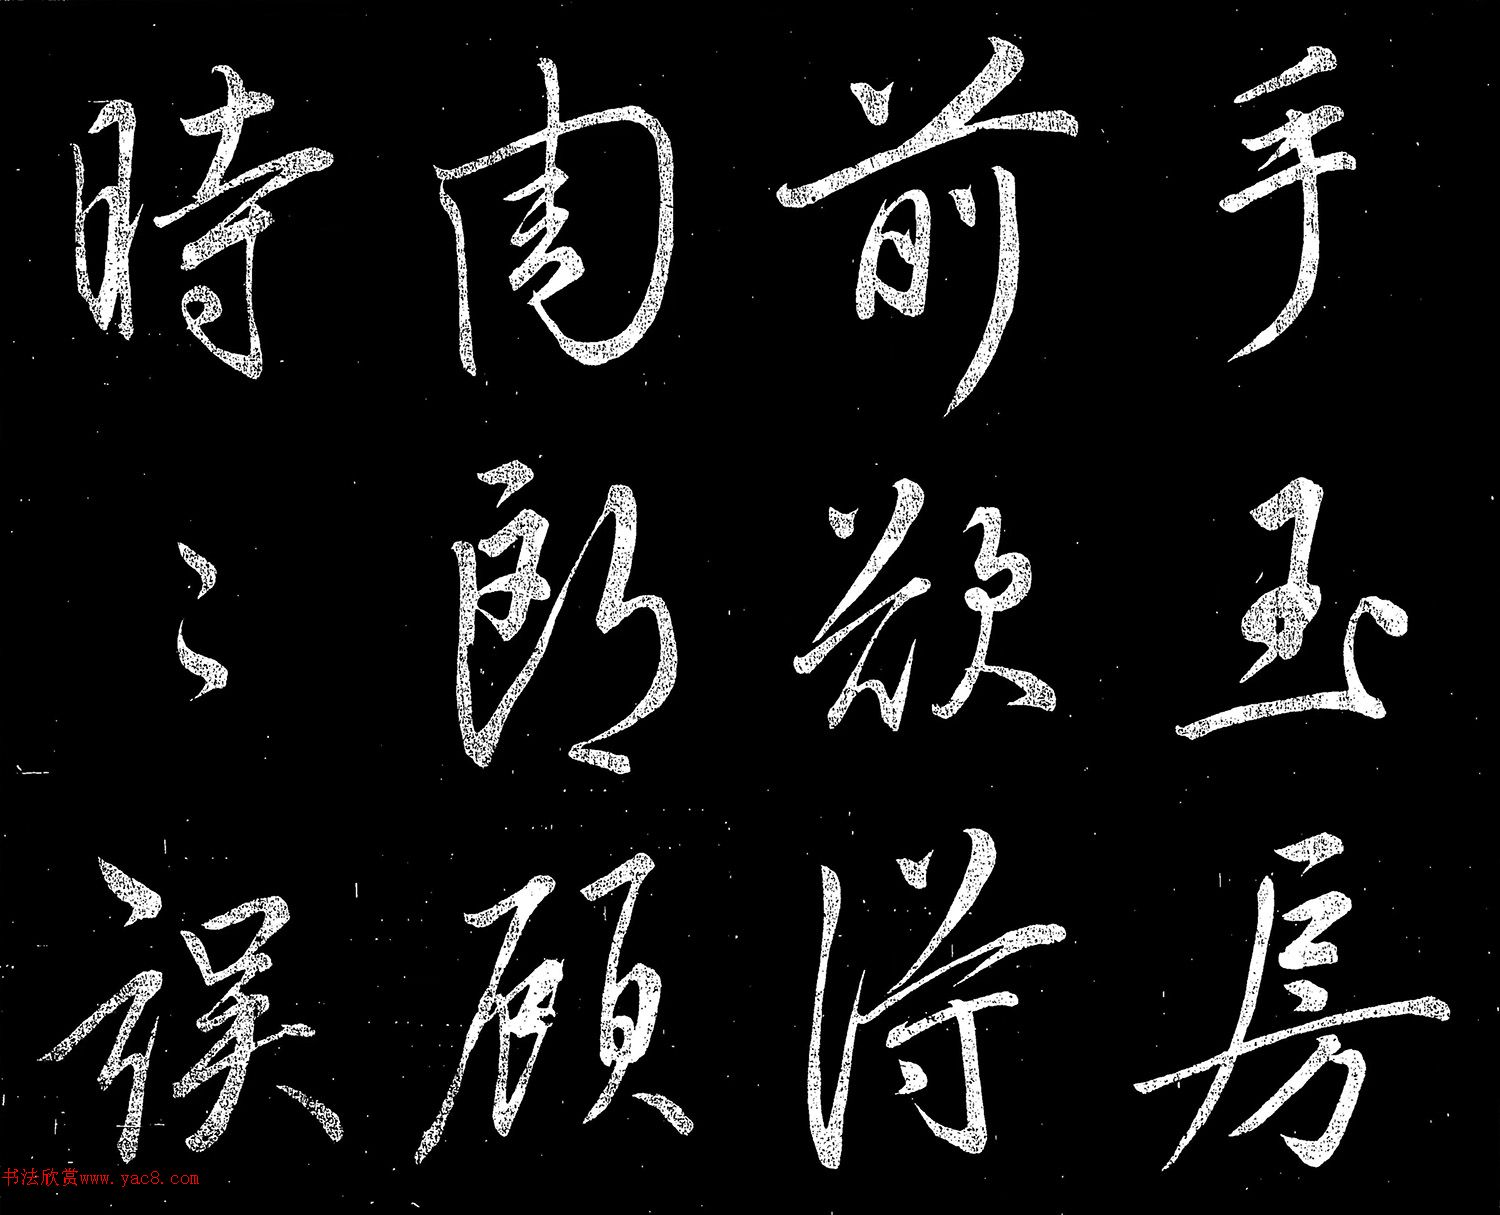 手玉房
前欲得
周郎顧
時〻誤
书法欣赏www.yac8.com